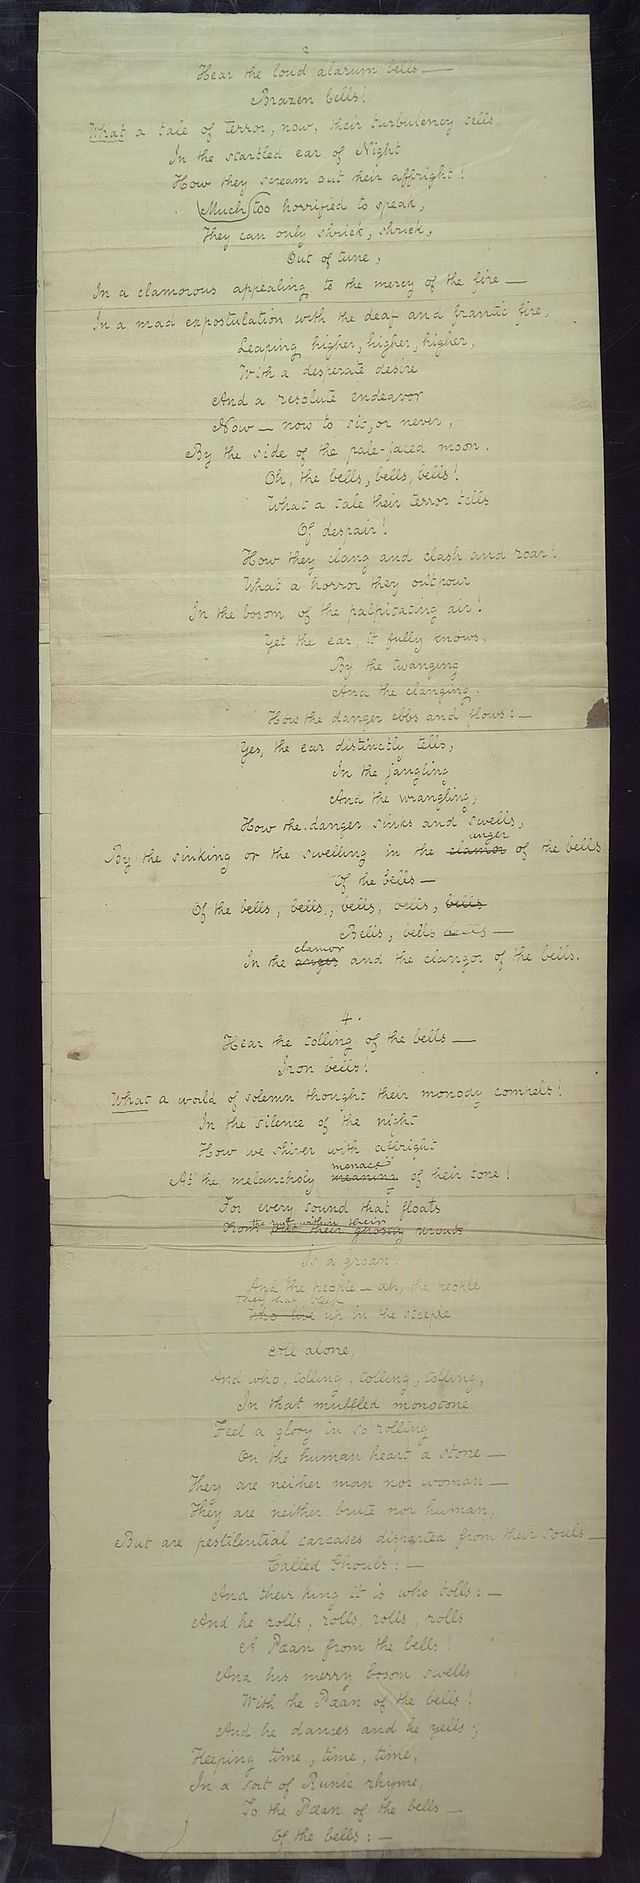 2
Hear the loud alarum bells —
Brazen bells!
What a tale of terror, now, their turbulency tells!
In the startled ear of Night
How they scream out their affright!
Much too horrified to speak,
They can only shriek, shriek,
Out of tune,
In a clamorous appealing to the mercy of the fire —
In a mad expostulation with the deaf and frantic fire,
Leaping higher, higher, higher,
With a desperate desire
And a resolute endeavor
Now — now to sit, or never,
By the side of the pale-faced moon.
Oh, the bells, bells, bells!
What a tale their terror tells
Of despair!
How they clang and clash and roar!
What a horror they outpour
In the bosom of the palpitating air!
Yet the ear, it fully knows,
By the twanging
And the clanging,
How the danger ebbs and flows: —
Yes, the ear distinctly tells,
In the jangling
And the wrangling,
How the danger sinks and swells,
anger
By the sinking or the swelling in the clamor of the bells
Of the bells —
Of the bells, bells, bells, bells, bells
Bells, bells bells —
clamor
In the anger and the clangor of the bells.
4.
Hear the tolling of the bells —
Iron bells!
What a world of solemn thought their monody compels!
In the silence of the night
How we shiver with affright
menace
At the melancholy meaning of their tone!
For every sound that floats
the rust within their
From out their ghostly throats
Is a groan.
And the people — ah, the people
They that sleep
Who live up in the steeple
All alone,
And who, tolling, tolling, tolling,
In that muffled monotone
Feel a glory in so rolling
On the human heart a stone —
They are neither man nor woman —
They are neither brute nor human,
But are pestilential carcases disparted from their souls —
Called Ghouls: —
And their king it is who tolls: —
And he rolls, rolls, rolls, rolls
A Pæan from the bells!
And his merry bosom swells
With the Pæan of the bells!
And he dances and he yells;
Keeping time, time, time,
In a sort of Runic rhyme,
To the Pæan of the bells —
Of the bells: —